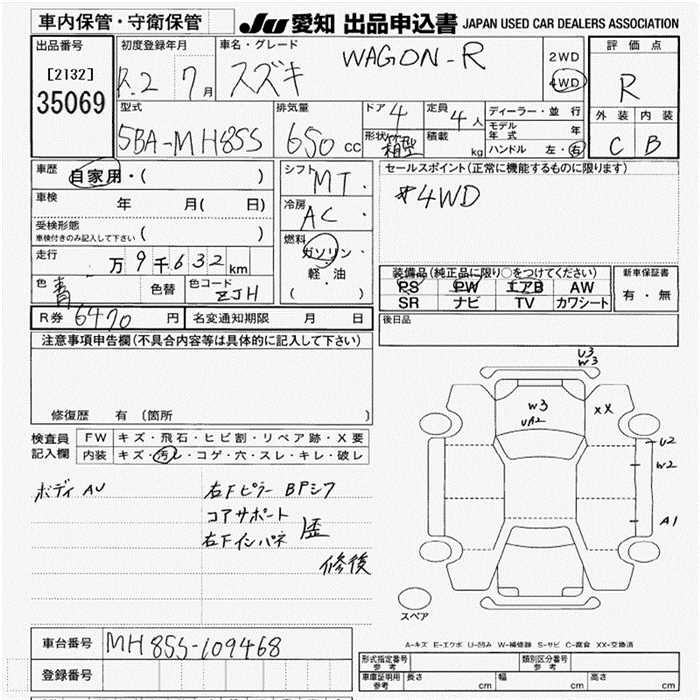 車内保管・守衛保管
JU 愛知 出品申込書 JAPAN USED CAR DEALERS ASSOCIATION
出品番号
[2132]
35069
初度登録年月
R.2 7月
車名・グレード
スズキ WAGON-R
2WD
4WD
評価点
R
外装 内装
C B
型式
5BA-MH85S
排気量
650 cc
ドア 4
形状 箱型
定員 4人
積載 kg
ディーラー・並行
モデル年式 年
ハンドル 左・右
車歴
自家用・( )
車検
年 月( 日)
受検形態
車検付きのみ記入して下さい ( )
走行
万9千632km
色 青 色替 色コード ZJH
シフト
MT
冷房
AC
燃料
ガソリン・
軽・油
( )
セールスポイント(正常に機能するものに限ります)
#4WD
装備品(純正品に限り○をつけてください)
PS PW エアB AW
SR ナビ TV カワシート
新車保証書
有・無
R券 6470 円 名変通知期限 月 日
後日品
注意事項申告欄(不具合内容等は具体的に記入して下さい)
修復歴 有 (箇所 )
検査員
記入欄
FW キズ・飛石・ヒビ割・リペア跡・X要
内装 キズ・汚レ・コゲ・穴・スレ・キレ・破レ
ボディ AU
右Fピラー BPシフ
コアサポート
右Fインパネ 歪
修後
U3
W3
W3
UA2
XX
U2
W2
A1
スペア
A-キズ E-エクボ U-凹み W-補修跡 S-サビ C-腐食 XX-交換済
車台番号 MH85S-109468
登録番号
形式指定番号
参考
類別区分番号
参考
車庫証明用
参考
長さ cm 幅 cm 高さ cm